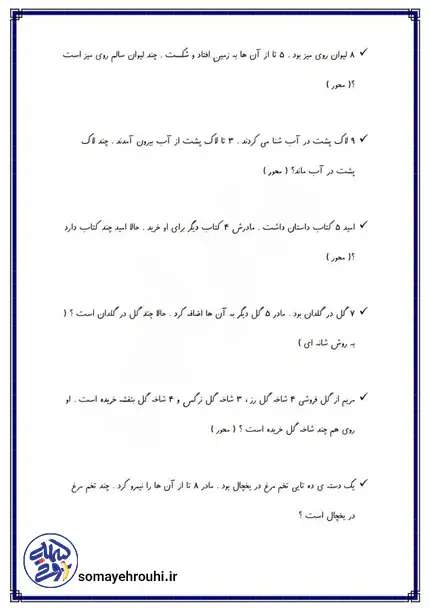 ✓ ۸ لیوان روی میز بود . ۵ تا از آن ها به زمین افتاد و شکست . چند لیوان سالم روی میز است
؟( محور )
✓ ۹ لاک پشت در آب شنا می کردند . ۳ تا لاک پشت از آب بیرون آمدند . چند لاک
پشت در آب ماند؟ ( محور )
✓ امید ۵ کتاب داستان داشت . مادرش ۴ کتاب دیگر برای او خرید . حالا امید چند کتاب دارد
؟( محور )
✓ ۷ گل در گلدان بود . مادر ۵ گل دیگر به آن ها اضافه کرد . حالا چند گل در گلدان است ؟ (
به روش شانه ای )
✓ مریم از گل فروشی ۴ شاخه گل رز ، ۳ شاخه گل نرگس و ۴ شاخه گل بنفشه خریده است . او
روی هم چند شاخه گل خریده است ؟ ( محور )
✓ یک دسته ی ده تایی تخم مرغ در یخچال بود . مادر ۸ تا از آن ها را نیمرو کرد . چند تخم مرغ
در یخچال است ؟
somayehrouhi.ir